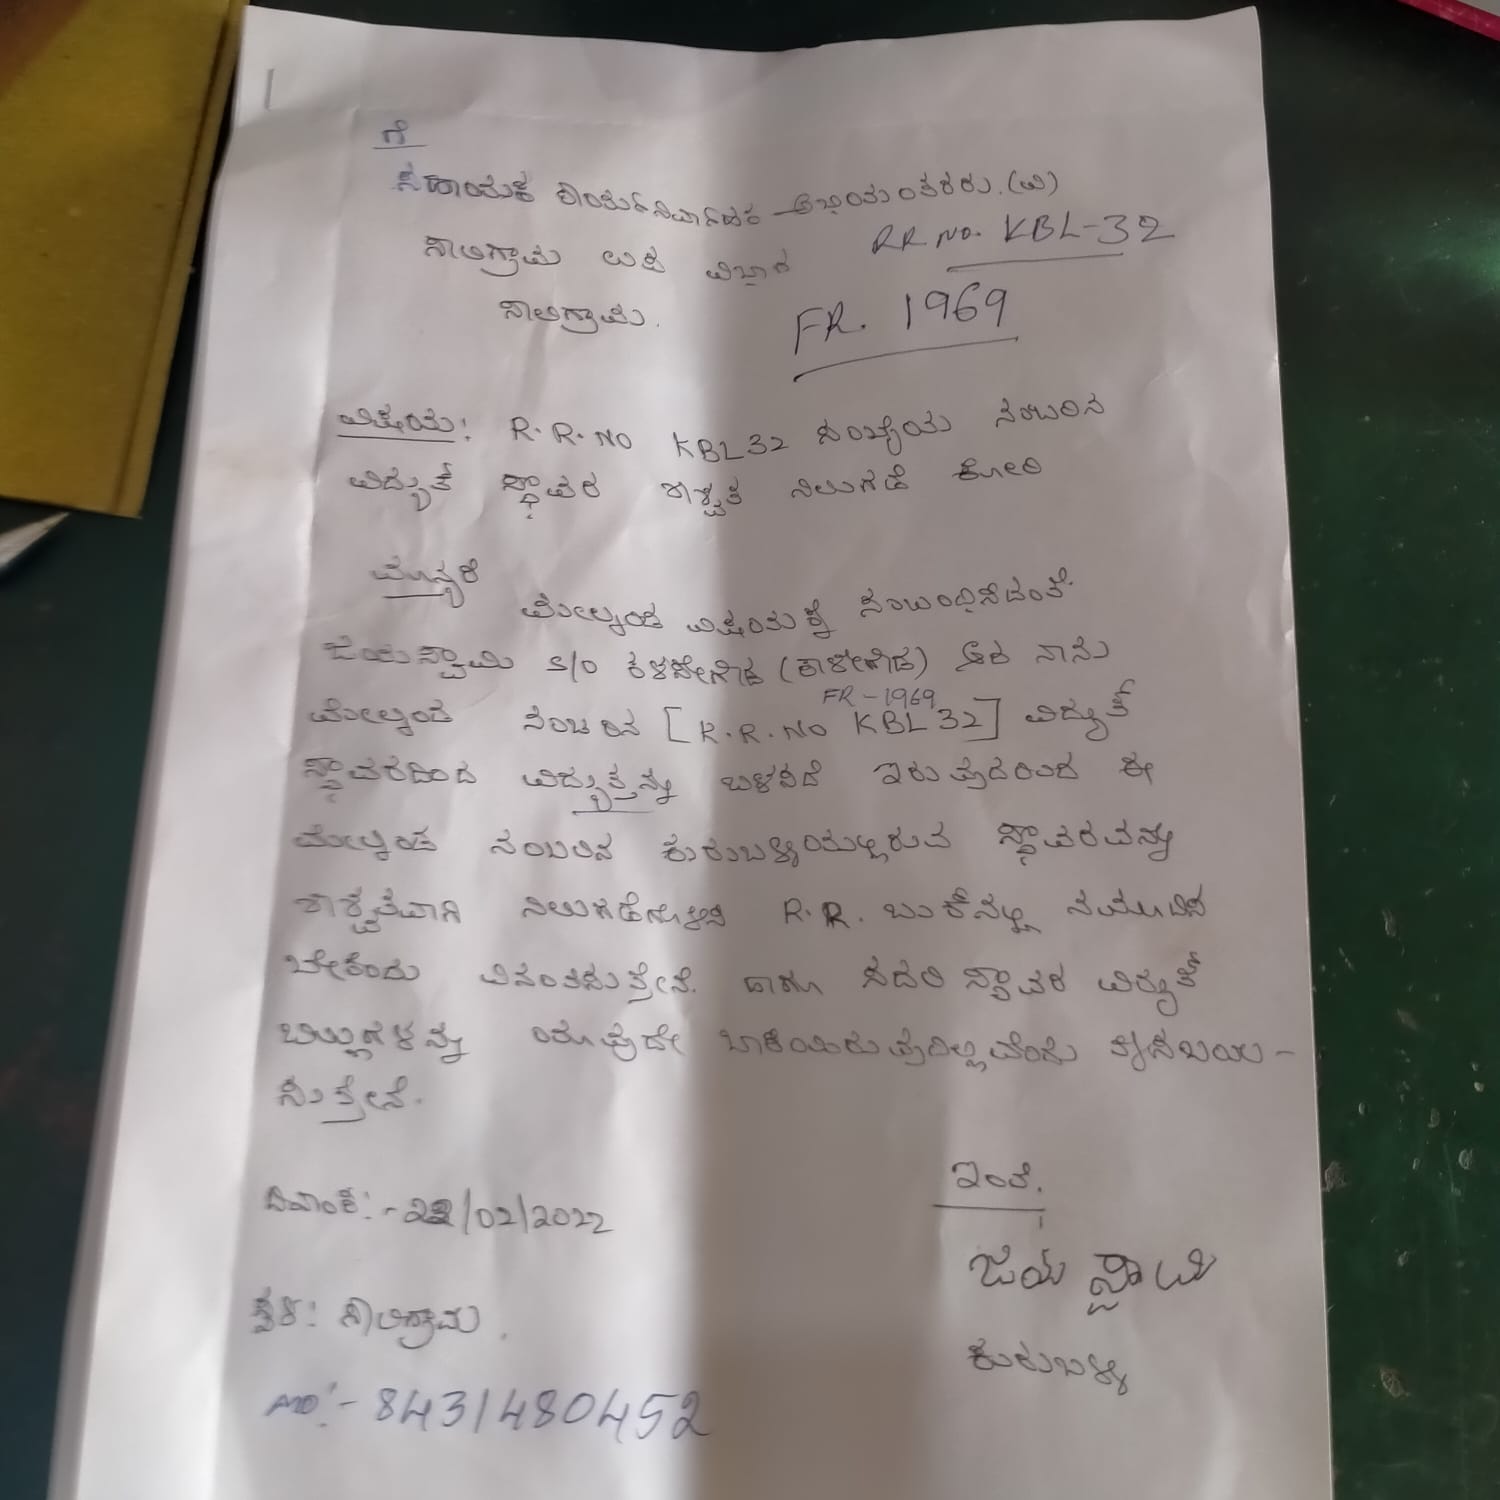 ಗೆ
ಸಹಾಯಕ ಕಾರ್ಯನಿರ್ವಾಹಕ ಅಭಿಯಂತರರು.(ವಿ)
ಸಾಲಿಗ್ರಾಮ ಉಪ ವಿಭಾಗ RR NO. KBL-32
ಸಾಲಿಗ್ರಾಮ. FR. 1969
ವಿಷಯ: R.R.NO KBL32 ಸಂಖ್ಯೆಯ ನಂಬರಿನ
ವಿದ್ಯುತ್ ಸ್ಥಾವರ ಶಾಶ್ವತ ನಿಲುಗಡೆ ಕೋರಿ
ಮಾನ್ಯರೆ
ಮೇಲ್ಕಂಡ ವಿಷಯಕ್ಕೆ ಸಂಬಂಧಿಸಿದಂತೆ.
ಜಯಸ್ವಾಮಿ S/O ಕಳಸೇಗೌಡ (ಕಾಳೇಗೌಡ) ಆದ ನಾನು
FR-1969
ಮೇಲ್ಕಂಡ ನಂಬರಿನ [R.R.NO KBL 32] ವಿದ್ಯುತ್
ಸ್ಥಾವರದಿಂದ ವಿದ್ಯುತ್ತನ್ನು ಬಳಸದೆ ಇರುವುದರಿಂದ ಈ
ಮೇಲ್ಕಂಡ ನಂಬರಿನ ಕುರುಬಳ್ಳಿಯಲ್ಲಿರುವ ಸ್ಥಾವರವನ್ನು
ಶಾಶ್ವತವಾಗಿ ನಿಲುಗಡೆಗೊಳಿಸಿ R.R. ಬುಕ್‌ನಲ್ಲಿ ನಮೂದಿಸ
ಬೇಕೆಂದು ವಿನಂತಿಸುತ್ತೇನೆ. ಹಾಗೂ ಸದರಿ ಸ್ಥಾವರ ವಿದ್ಯುತ್
ಬಿಲ್ಲುಗಳನ್ನು ಯಾವುದೇ ಬಾಕಿಯಿರುವುದಿಲ್ಲವೆಂದು ತಿಳಿಯಬಯ-
ಸುತ್ತೇನೆ.
ದಿನಾಂಕ:-22/02/2022
ಸ್ಥಳ: ಸಾಲಿಗ್ರಾಮ.
MO:-8431480452
ಇಂತಿ.
ಜಯಸ್ವಾಮಿ
ಕುರುಬಳ್ಳಿ